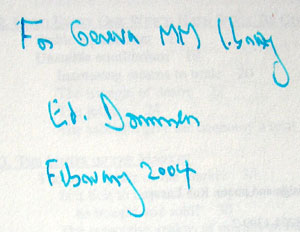 For Geneva MM library
Ed. Dommen
February 2004